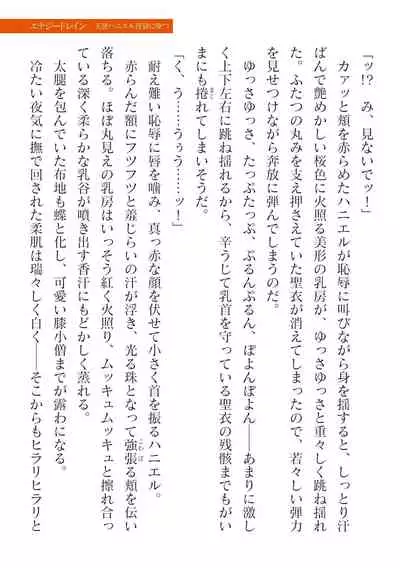 エナジードレイン　天使ハニエル淫獄に堕つ
「ッ!?　み、見ないでッ！」
カァッと頬を赤らめたハニエルが恥辱に叫びながら身を揺すると、しっとり汗
ばんで艶めかしい桜色に火照る美形の乳房が、ゆっさゆっさと重々しく跳ね揺れ
る。ふたつの丸みを支え押さえていた聖衣が消えてしまったので、若々しい弾力
を見せつけながら奔放に弾んでしまうのだ。
ゆっさゆっさ、たっぷたっぷ、ぷるんぷるん、ぽよんぽよん――あまりに激し
く上下左右に跳ね揺れるから、辛うじて乳首を守っている聖衣の残骸までもがい
まにも捲れてしまいそうだ。
「く、う……うぅう……ッ！」
耐え難い恥辱に唇を噛み、真っ赤な顔を伏せて小さく首を振るハニエル。
赤らんだ額にフツフツと羞じらいの汗が浮き、光る珠となって強張る頬を伝い
落ちる。ほぼ丸見えの乳房はいっそう紅く火照り、ムッキュムッキュと擦れ合っ
ている深く柔らかな乳谷が噴き出す香汗にもどかしく蒸れる。
太腿を包んでいた布地も蝶と化し、可愛い膝小僧までが露わになる。
冷たい夜気に撫で回された柔肌は瑞々しく白く――そこからもヒラリヒラリと